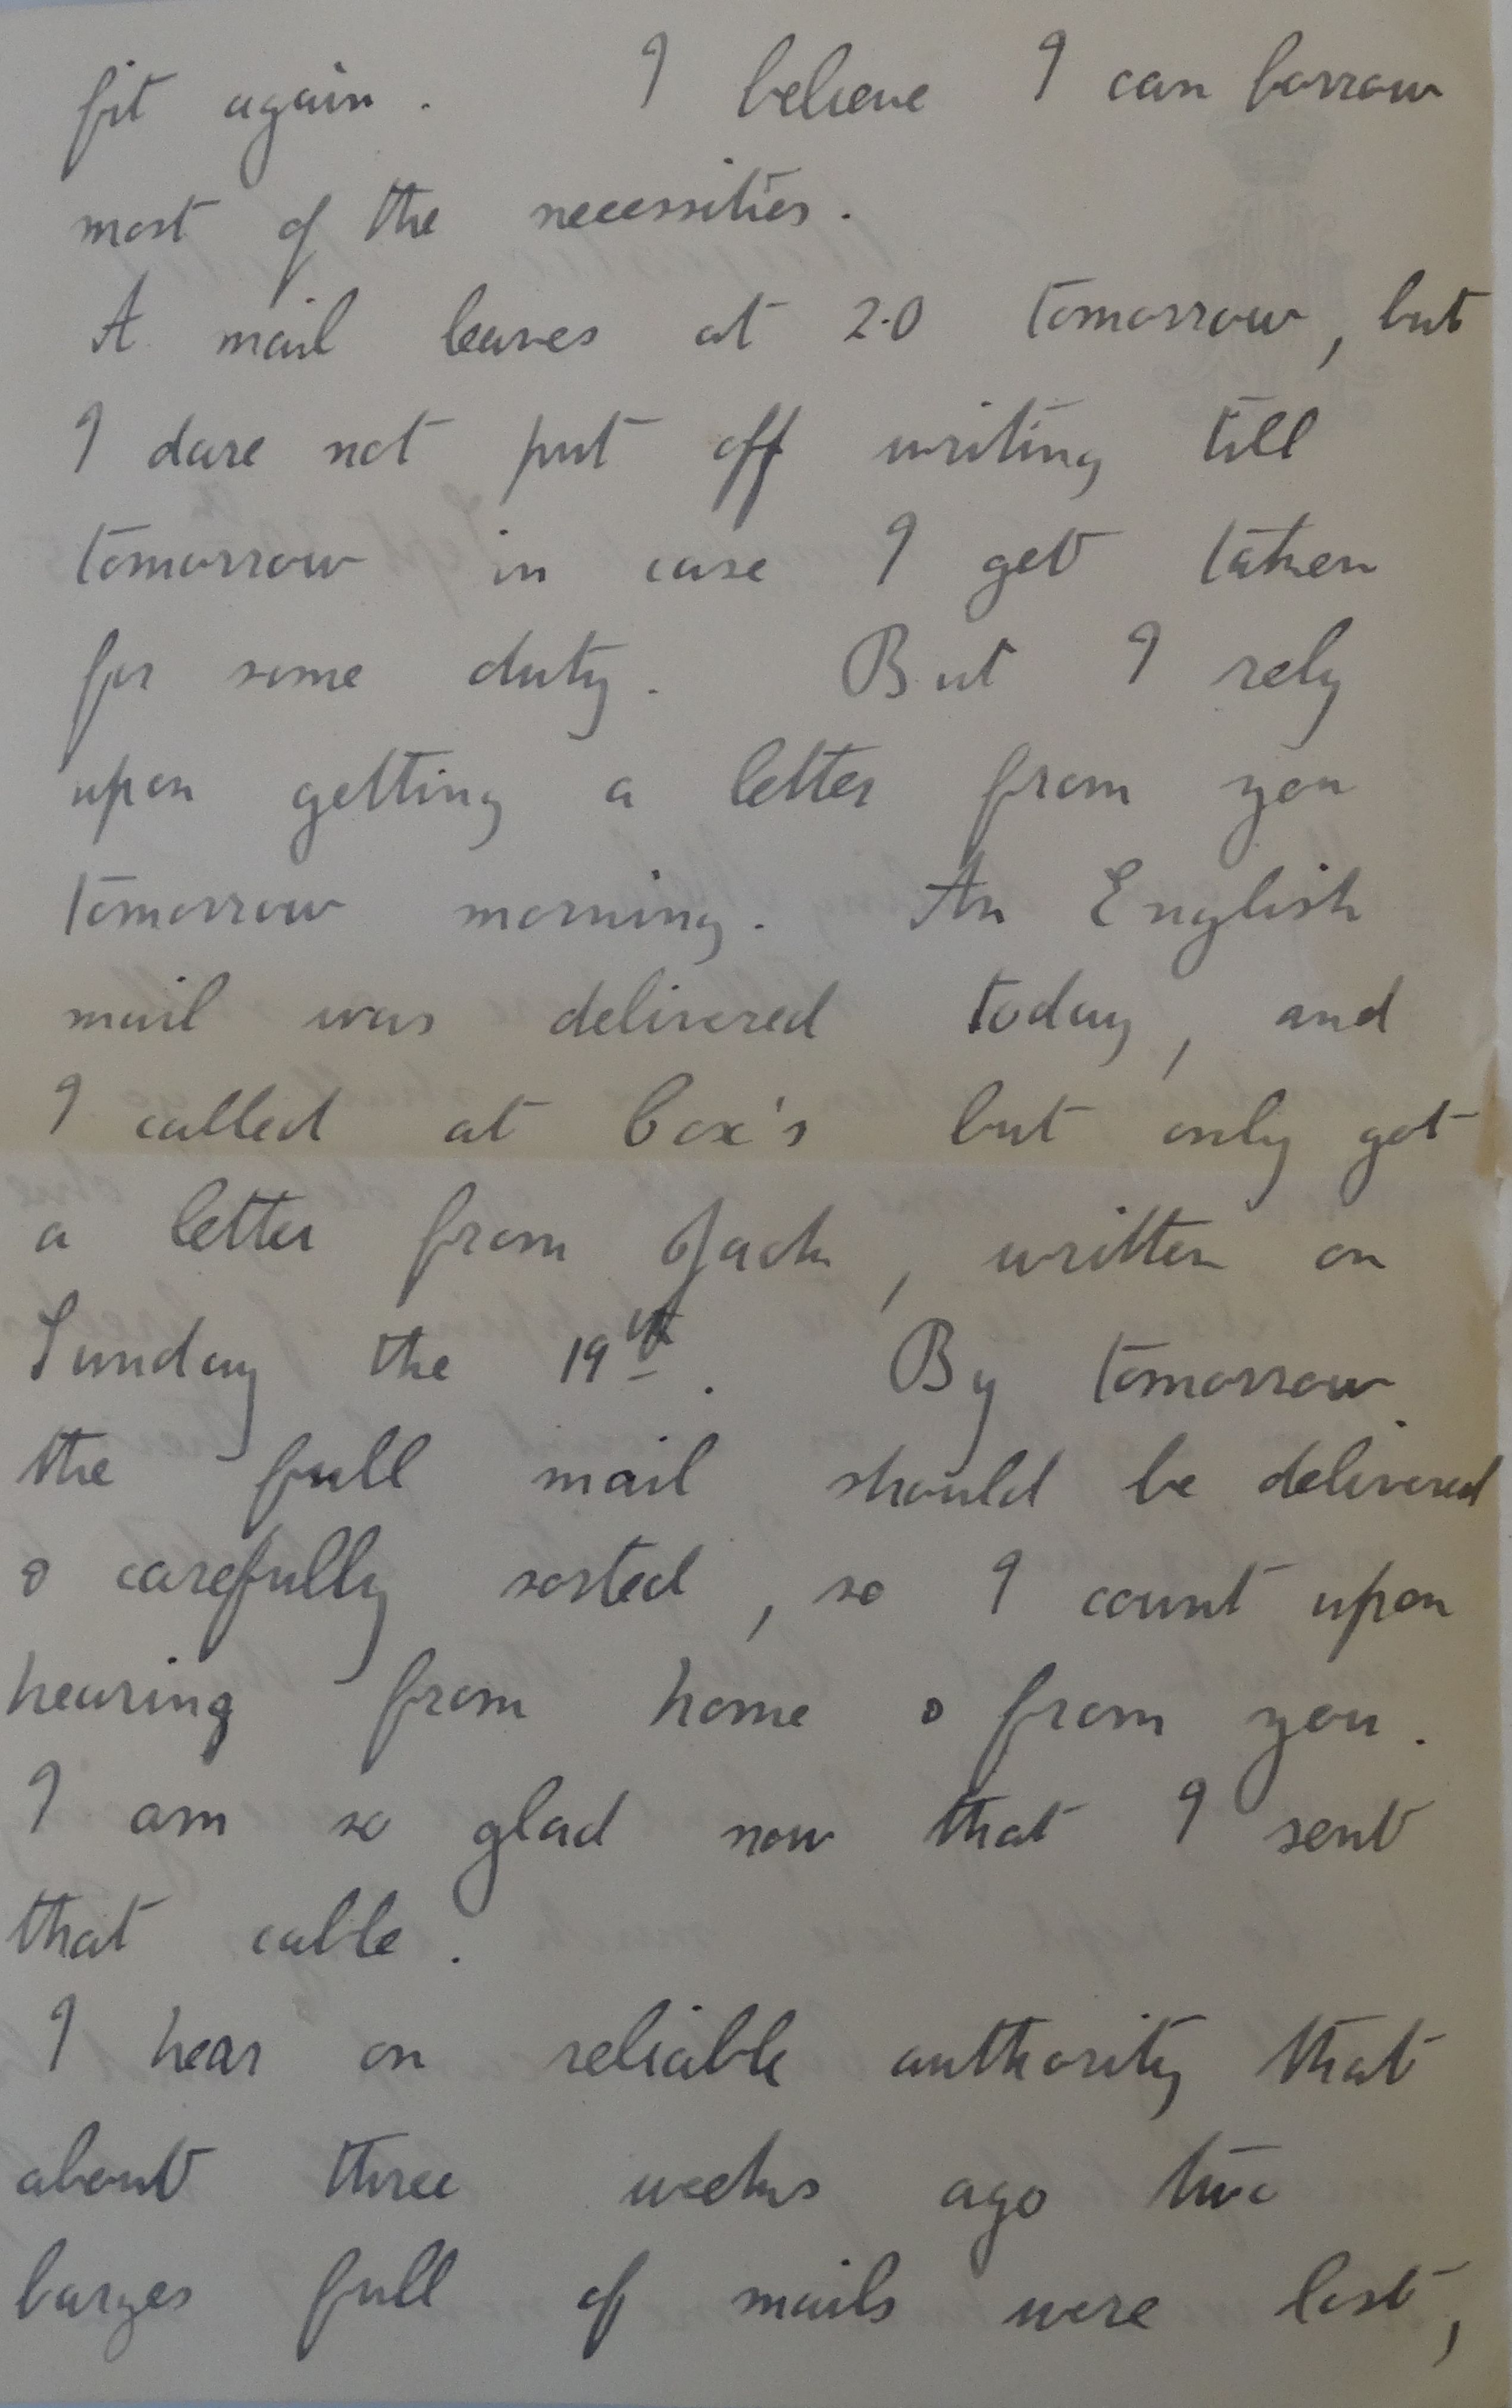 fit again. I believe I can borrow
most of the necessities.
A mail leaves at 2.0 tomorrow, but
I dare not put off writing till
tomorrow in case I get taken
for some duty. But I rely
upon getting a letter from you
tomorrow morning. An English
mail was delivered today, and
I called at Cox's but only got
a letter from Jack, written on
Sunday the 19th. By tomorrow
the full mail should be delivered
& carefully sorted, so I count upon
hearing from home & from you.
I am so glad now that I sent
that cable.
I hear on reliable authority that
about three weeks ago two
barges full of mails were lost,